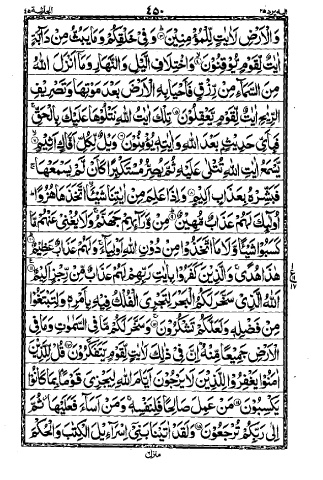 اليه يرد ٢٥ ٤٥٠ الجاثية ٤٥
وَالْاَرْضِ لَاٰيٰتٍ لِّلْمُؤْمِنِيْنَ ۝ وَفِيْ خَلْقِكُمْ وَمَا يَبُثُّ مِنْ دَآبَّةٍ
اٰيٰتٌ لِّقَوْمٍ يُّوْقِنُوْنَ ۝ وَاخْتِلَافِ الَّيْلِ وَالنَّهَارِ وَمَآ اَنْزَلَ اللّٰهُ
مِنَ السَّمَآءِ مِنْ رِّزْقٍ فَاَحْيَا بِهِ الْاَرْضَ بَعْدَ مَوْتِهَا وَتَصْرِيْفِ
الرِّيٰحِ اٰيٰتٌ لِّقَوْمٍ يَّعْقِلُوْنَ ۝ تِلْكَ اٰيٰتُ اللّٰهِ نَتْلُوْهَا عَلَيْكَ بِالْحَقِّ
فَبِاَيِّ حَدِيْثٍۭ بَعْدَ اللّٰهِ وَاٰيٰتِهٖ يُؤْمِنُوْنَ ۝ وَيْلٌ لِّكُلِّ اَفَّاكٍ اَثِيْمٍ ۝
يَّسْمَعُ اٰيٰتِ اللّٰهِ تُتْلٰى عَلَيْهِ ثُمَّ يُصِرُّ مُسْتَكْبِرًا كَاَنْ لَّمْ يَسْمَعْهَا
فَبَشِّرْهُ بِعَذَابٍ اَلِيْمٍ ۝ وَاِذَا عَلِمَ مِنْ اٰيٰتِنَا شَيْـًٔا اتَّخَذَهَا هُزُوًا
اُولٰٓئِكَ لَهُمْ عَذَابٌ مُّهِيْنٌ ۝ مِنْ وَّرَآئِهِمْ جَهَنَّمُ وَلَا يُغْنِيْ عَنْهُمْ مَّا
كَسَبُوْا شَيْـًٔا وَّلَا مَا اتَّخَذُوْا مِنْ دُوْنِ اللّٰهِ اَوْلِيَآءَ وَلَهُمْ عَذَابٌ عَظِيْمٌ ۝
هٰذَا هُدًى وَالَّذِيْنَ كَفَرُوْا بِاٰيٰتِ رَبِّهِمْ لَهُمْ عَذَابٌ مِّنْ رِّجْزٍ اَلِيْمٌ ۝
اَللّٰهُ الَّذِيْ سَخَّرَ لَكُمُ الْبَحْرَ لِتَجْرِيَ الْفُلْكُ فِيْهِ بِاَمْرِهٖ وَلِتَبْتَغُوْا
مِنْ فَضْلِهٖ وَلَعَلَّكُمْ تَشْكُرُوْنَ ۝ وَسَخَّرَ لَكُمْ مَّا فِي السَّمٰوٰتِ وَمَا فِي
الْاَرْضِ جَمِيْعًا مِّنْهُ اِنَّ فِيْ ذٰلِكَ لَاٰيٰتٍ لِّقَوْمٍ يَّتَفَكَّرُوْنَ ۝ قُلْ لِّلَّذِيْنَ
اٰمَنُوْا يَغْفِرُوْا لِلَّذِيْنَ لَا يَرْجُوْنَ اَيَّامَ اللّٰهِ لِيَجْزِيَ قَوْمًۢا بِمَا كَانُوْا
يَكْسِبُوْنَ ۝ مَنْ عَمِلَ صَالِحًا فَلِنَفْسِهٖ وَمَنْ اَسَآءَ فَعَلَيْهَا ثُمَّ
اِلٰى رَبِّكُمْ تُرْجَعُوْنَ ۝ وَلَقَدْ اٰتَيْنَا بَنِيْٓ اِسْرَآءِيْلَ الْكِتٰبَ وَالْحُكْمَ